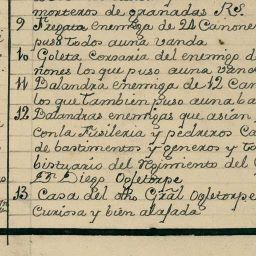 morteros de granadas RS.
9 Fregata enemiga de 24 Cañone
puso todos auna vanda
10 Goleta Corsaria del enemigo d
ñones los que puso auna vand
11 Balandra enemiga de 12 Can
los que tambien puso auna ba
12 Balandras enemigas que asian
con la Fusileria y pedreros Ca
de bastimentos y generos y to
bistuario del Regimiento del
Dn Diego Ogletorpe
13 Casa del dho Gral Ogletorpe
Curiosa y bien alajada